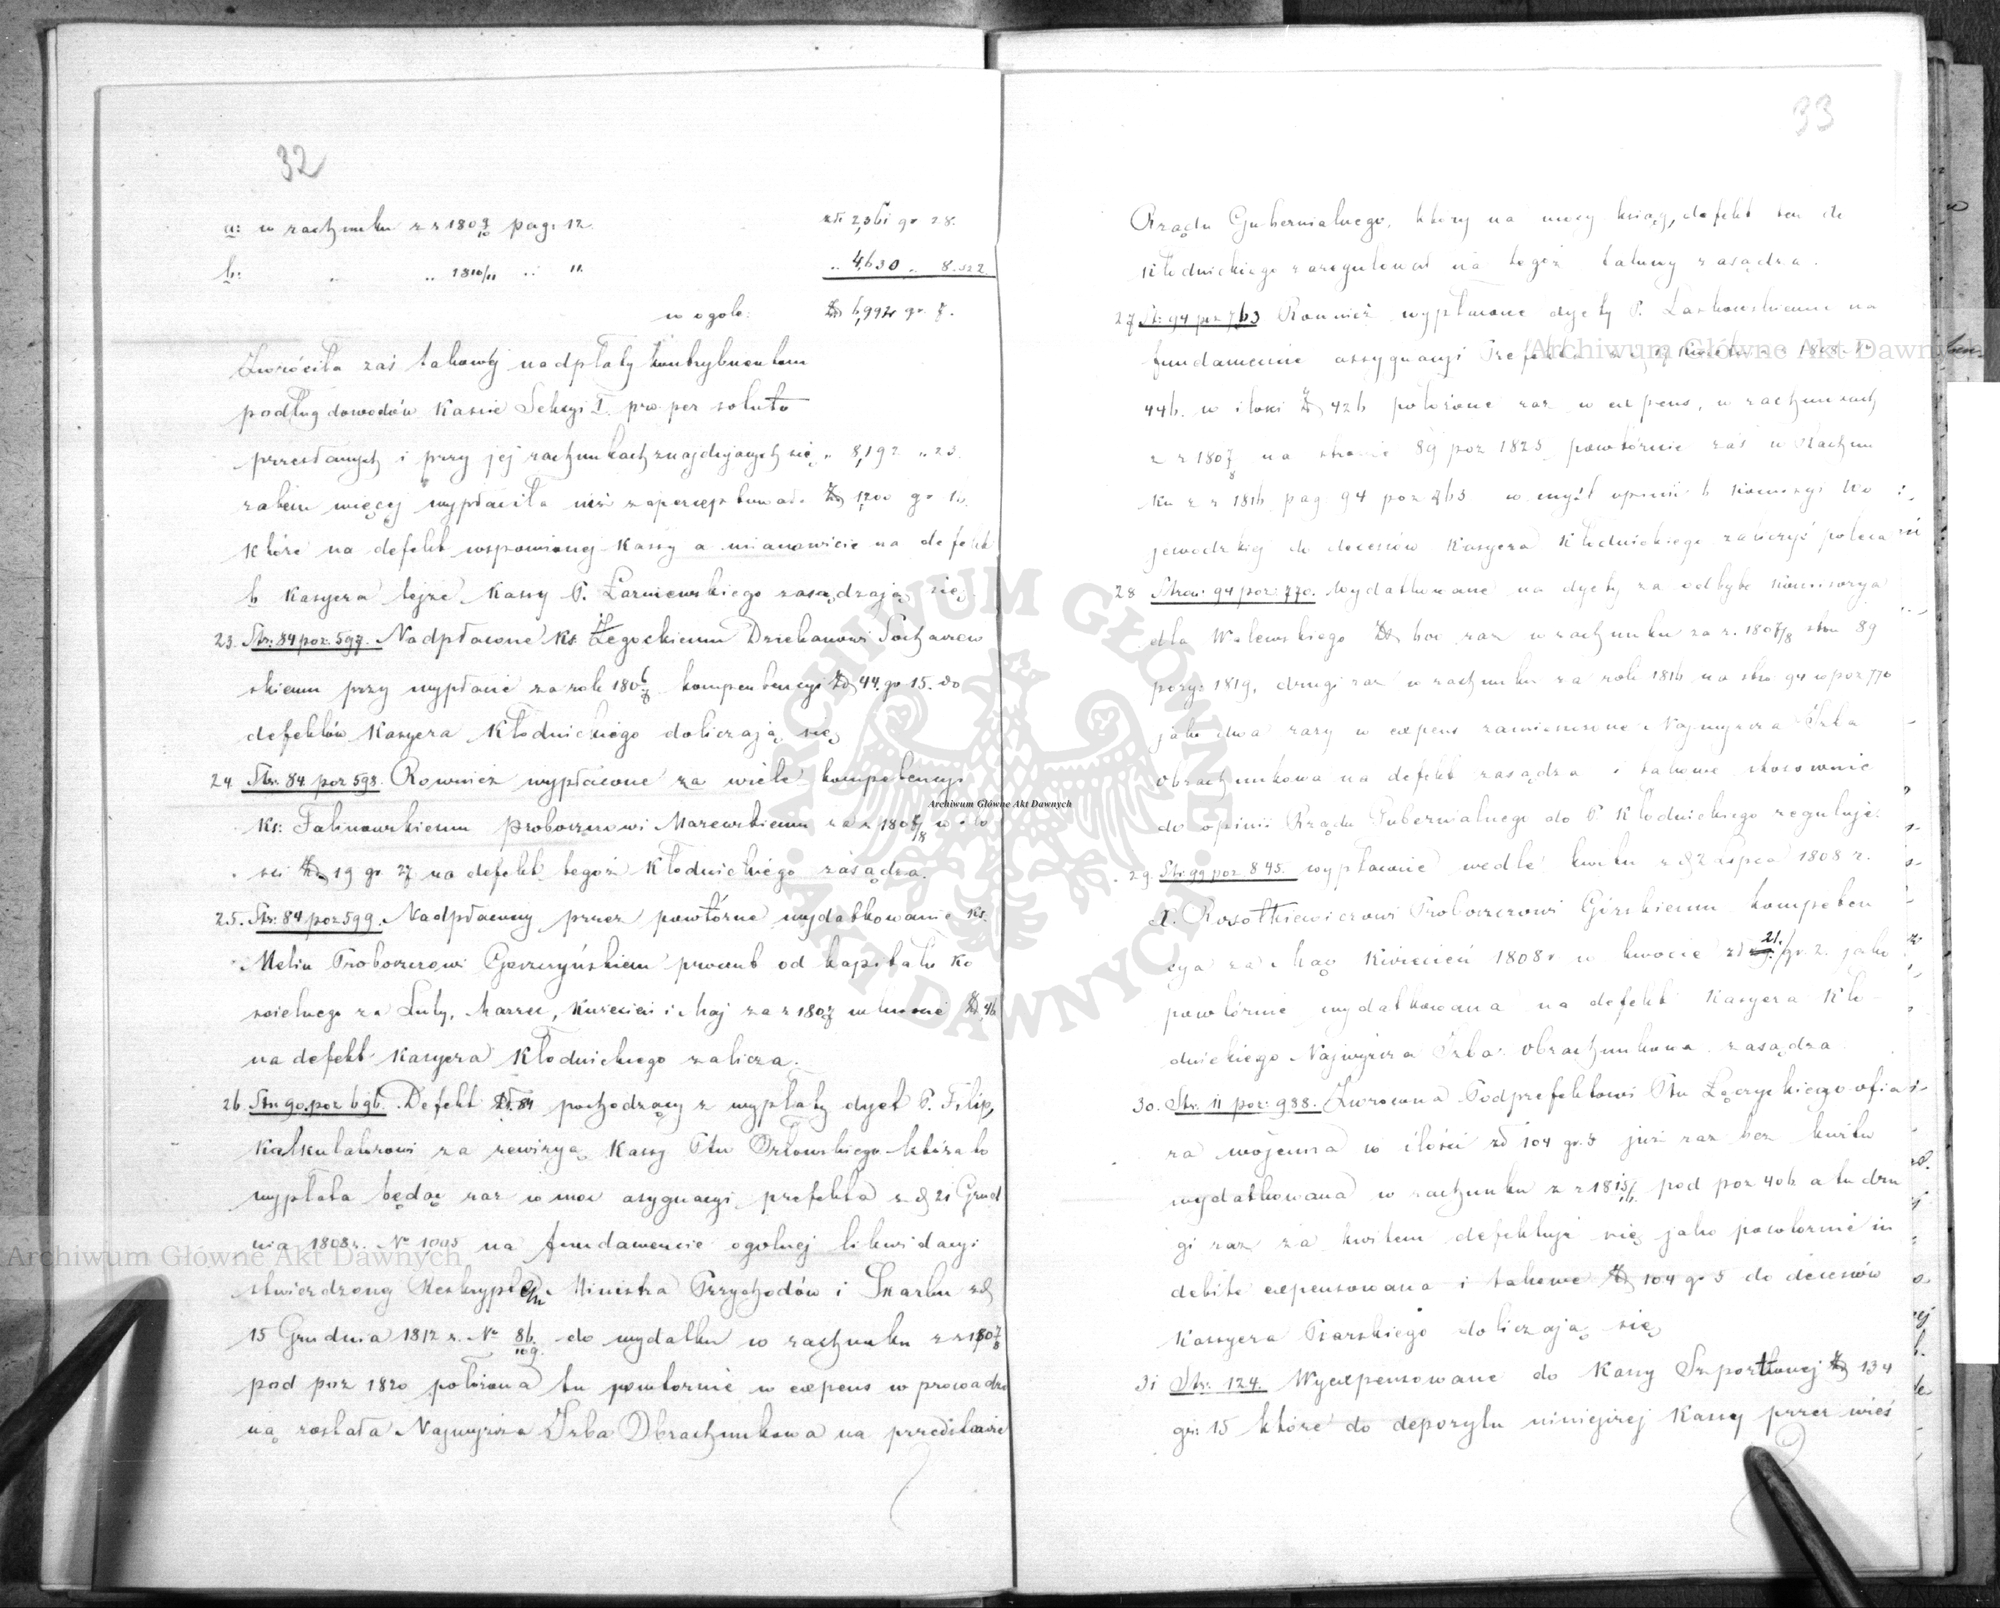 32
a: w rachunku z r 180 9/10 pag. 12. złt 2,361 gr 28.
b: " .. 1810/11 .. 11. .. 4,630 .. 8.
w ogole: Zł 6,992 gr. 7.
Zwróciła zaś takowéj nadpłaty kontrybuentom
podług dowodów Kassie Sekcyi I. pro per soluto
przesłanych i przy jej rachunkach znajdujących się, " 8,192 " 23.
zatem więcej wypłaciła niż zapercyptowała Zł 1200 gr
które na defekt wspomionej Kassy a mianowicie na defekt
b Kasyera tejże Kassy P. Zarniewskiego zasądzają się.
23. Str: 84 poz. 597. Nadpłacone Ks. Zegockiemu Dziekanowi Sochaczew
skiemu przy wypłacie za rok 180 6/7 kompentencyi Zł 44. gr 15. do
defektów Kasyera Kłodnickiego doliczają się
24. Str. 84 poz 598. Rownież wypłacone za wiele kompetencyi
Ks: Falinowskiemu proboszczowi Mazewskiemu za r 180 7/8 w ilo
ści Zł 19 gr 27 na defekt tegoż Kłodnickiego zasądza.
25. Str: 84 poz 599. Nadpłacony przez powtórne wydatkowanie Ks.
Melin Proboszczowi procent od kapitału Ko
ścielnego za Luty, Marzec, Kwiecień i Maj za r 180 w kwocie Zł 46
na defekt Kasyera Kłodnickiego zalicza.
26 Str. 90. poz 696. Defekt Zł. 84 pochodzący z wypłaty dyet P. Filip,
Kalkulatorowi za rewizyą Kassy Ptu Orłowskiego która to
wypłata będąc raz w moc asygnacyi prefekta z d 21 Grud
nia 1808 r. No 1005 na fundamencie ogolnej likwidacyi
stwierdzonej Reskryptem Ministra Przychodów i Skarbu z d
15 Grudnia 1812 r. No 86/109. do wydatku w rachunku z r 180 7/8
pod poz 1820 położona tu powtornie w expens wprowadzo
ną została Najwyższa Izba Obrachunkowa na przedstawie
33
Rządu Gubernialnego, który na mocy ksiąg, defekt ten do
Kłodnickiego zaregulował na tegoż takowy zasądza.
27 Str: 94 poz 763 Rownież wypłacone dyety P. Laskowskiemu na
fundamencie assygnacyi Prefekta z d 17 Kwietnia 1808 No
446. w ilości Zł 426 położone raz w expens, w rachunkach
z r 180 7/8 na stronie 89 poz 1825 powtórnie zaś w Rachun
ku z r 1816 pag 94 poz 763 w myśl opinii b Komisyi Wo
jewodzkiej do decessów Kasyera Kłodnickiego zaliczyć poleca
28 Stron: 94 poz: 770. Wydatkowane na dyety za odbyte Komisorya
dla Walewskiego Zł 600 raz w rachunku za r. 180 7/8 str 89
pozy: 1819, drugi raz w rachunku za rok 1816 na str 94 w poz 770
jako dwa razy w expens zamieszczone Najwyższa Izba
Obrachunkowa na defekt zasądza i takowe stosownie
do opinii Rządu Gubernialnego do P. Kłodnickiego reguluje.
29. Str. 99 poz 845. wypłacone wedle kwitu z d 2 Lipca 1808 r.
X. Rosołkiewiczowi Proboszczowi Górskiemu kompeten
cya za Maj Kwiecień 1808 r w kwocie zł 21. gr. 2. jako
powtórnie wydatkowana na defekt Kasyera Kło-
dnickiego Najwyższa Izba Obrachunkowa zasądza.
30. Str. 11 poz: 988. Zwrocona Podprefektowi Ptu Łęczyckiego ofia
ra wojenna w ilości zł 104 gr 5 już raz bez kwitu
wydatkowana w rachunku z r 18 15/16 pod poz 406 a tu dru
gi raz za kwitem defektuje się jako powtornie in
debite expensowana i takowe Zł 104 gr 5 do decesów
Kassyera Psarskiego doliczają się
31 Str: 124. Wyexpensowane do Kassy Szportlowej Zł 134
gr: 15 które do depozytu niniejszej Kassy przez wieś